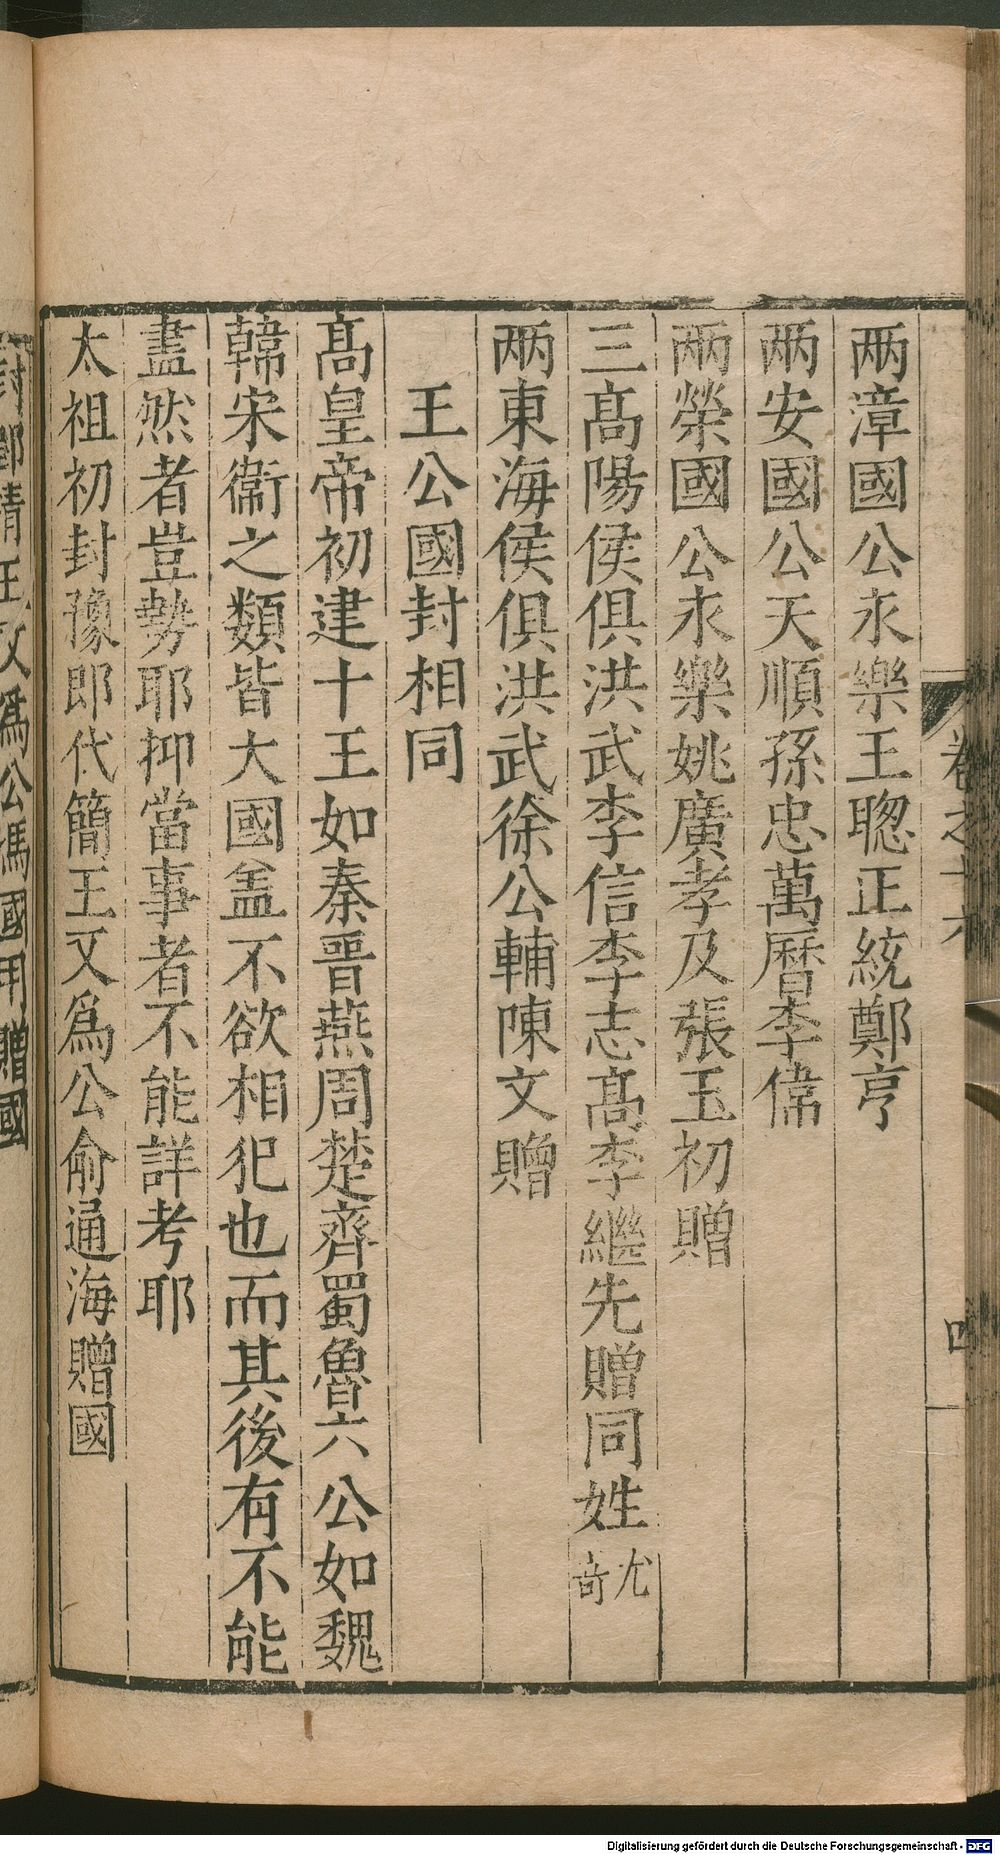 两漳國公永樂王聦正統鄭亨
两安國公天順孫忠萬曆李偉
两榮國公永樂姚廣孝及張玉初贈
三髙陽侯俱洪武李信李志髙李繼先贈同姓尤奇
两東海侯俱洪武徐公輔陳文贈
王公國封相同
髙皇帝初建十王如秦晉燕周楚齊蜀魯六公如魏
韓宋衞之類皆大國盖不欲相犯也而其後有不能
盡然者豈勢耶抑當事者不能詳考耶
太祖初封豫郎代簡王又爲公俞通海贈國
封郢靖王又爲公馮國用贈國
卷之十六
四
Digitalisierung gefördert durch die Deutsche Forschungsgemeinschaft - DFG